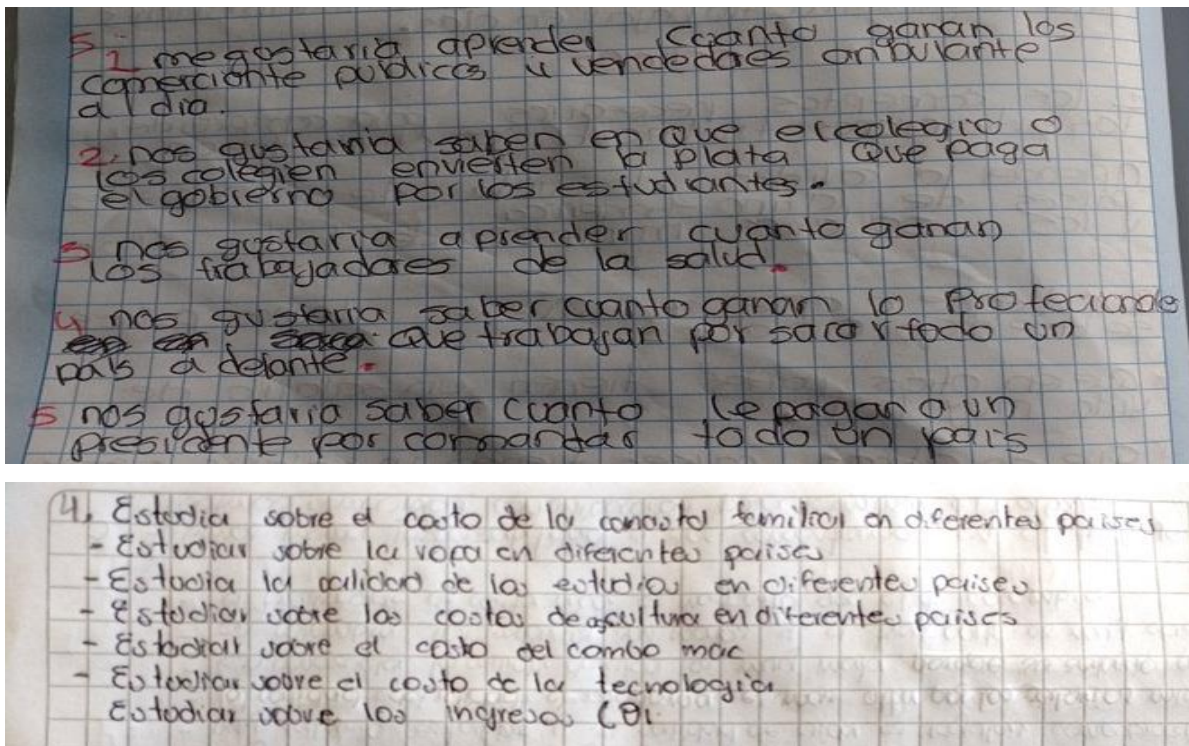 5. 1 me gustaria aprender cuanto ganan los
comerciante publicos y vendedores anbulante
al dia.
2. nos gustaria saben en que el colegio o
los colegien envierten la plata que paga
el gobierno por los estudiantes.
3 nos gustaria aprender cuanto ganan
los trabajadores de la salud.
4 nos gustaria saber cuanto ganan lo
que trabajan por sacar todo un
pais a delante.
5 nos gustaria saber cuanto le pagan a un
presidente por comandar todo un pais
4. Estudia sobre el costo de la canasta familiar en diferentes paises
- Estudiar sobre la ropa en diferentes paises
- Estudia la calidad de los estudios en diferentes paises
- Estudiar sobre los costos de cultura en diferentes paises
- Estudiar sobre el costo del combo mac
- Estudiar sobre el costo de la tecnologia
Estudiar sobre los ingresos